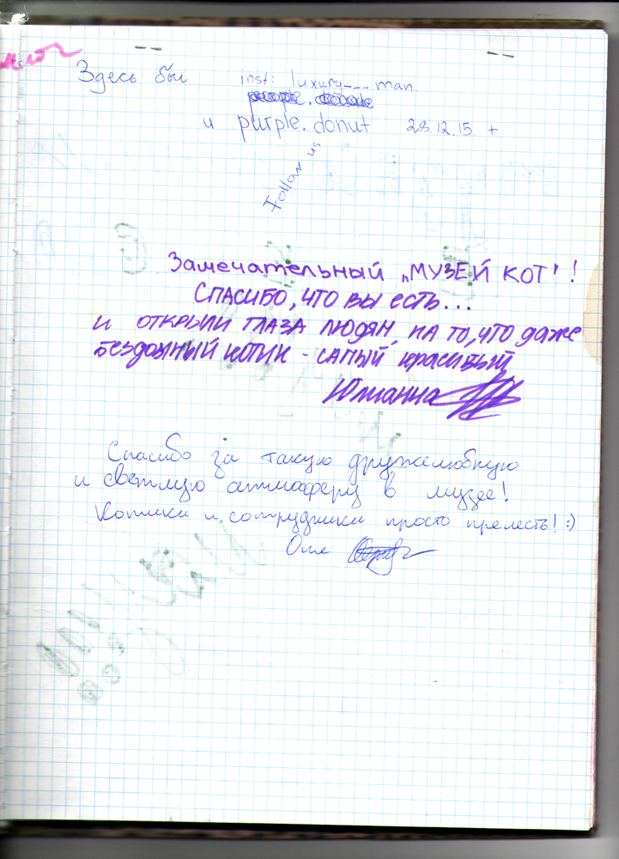 Здесь был inst: luxury___man
и purple.donut 28.12.15 +
Follow us
Замечательный „МУЗЕЙ КОТ"!
СПАСИБО, ЧТО ВЫ ЕСТЬ...
И ОТКРЫЛИ ГЛАЗА ЛЮДЯМ, НА ТО, ЧТО даже
БЕЗДОМНЫЙ КОТИК - САМЫЙ красивый
Юлианна
Спасибо за такую дружелюбную
и светлую атмосферу в музее!
Котики и сотрудники просто прелесть! :)